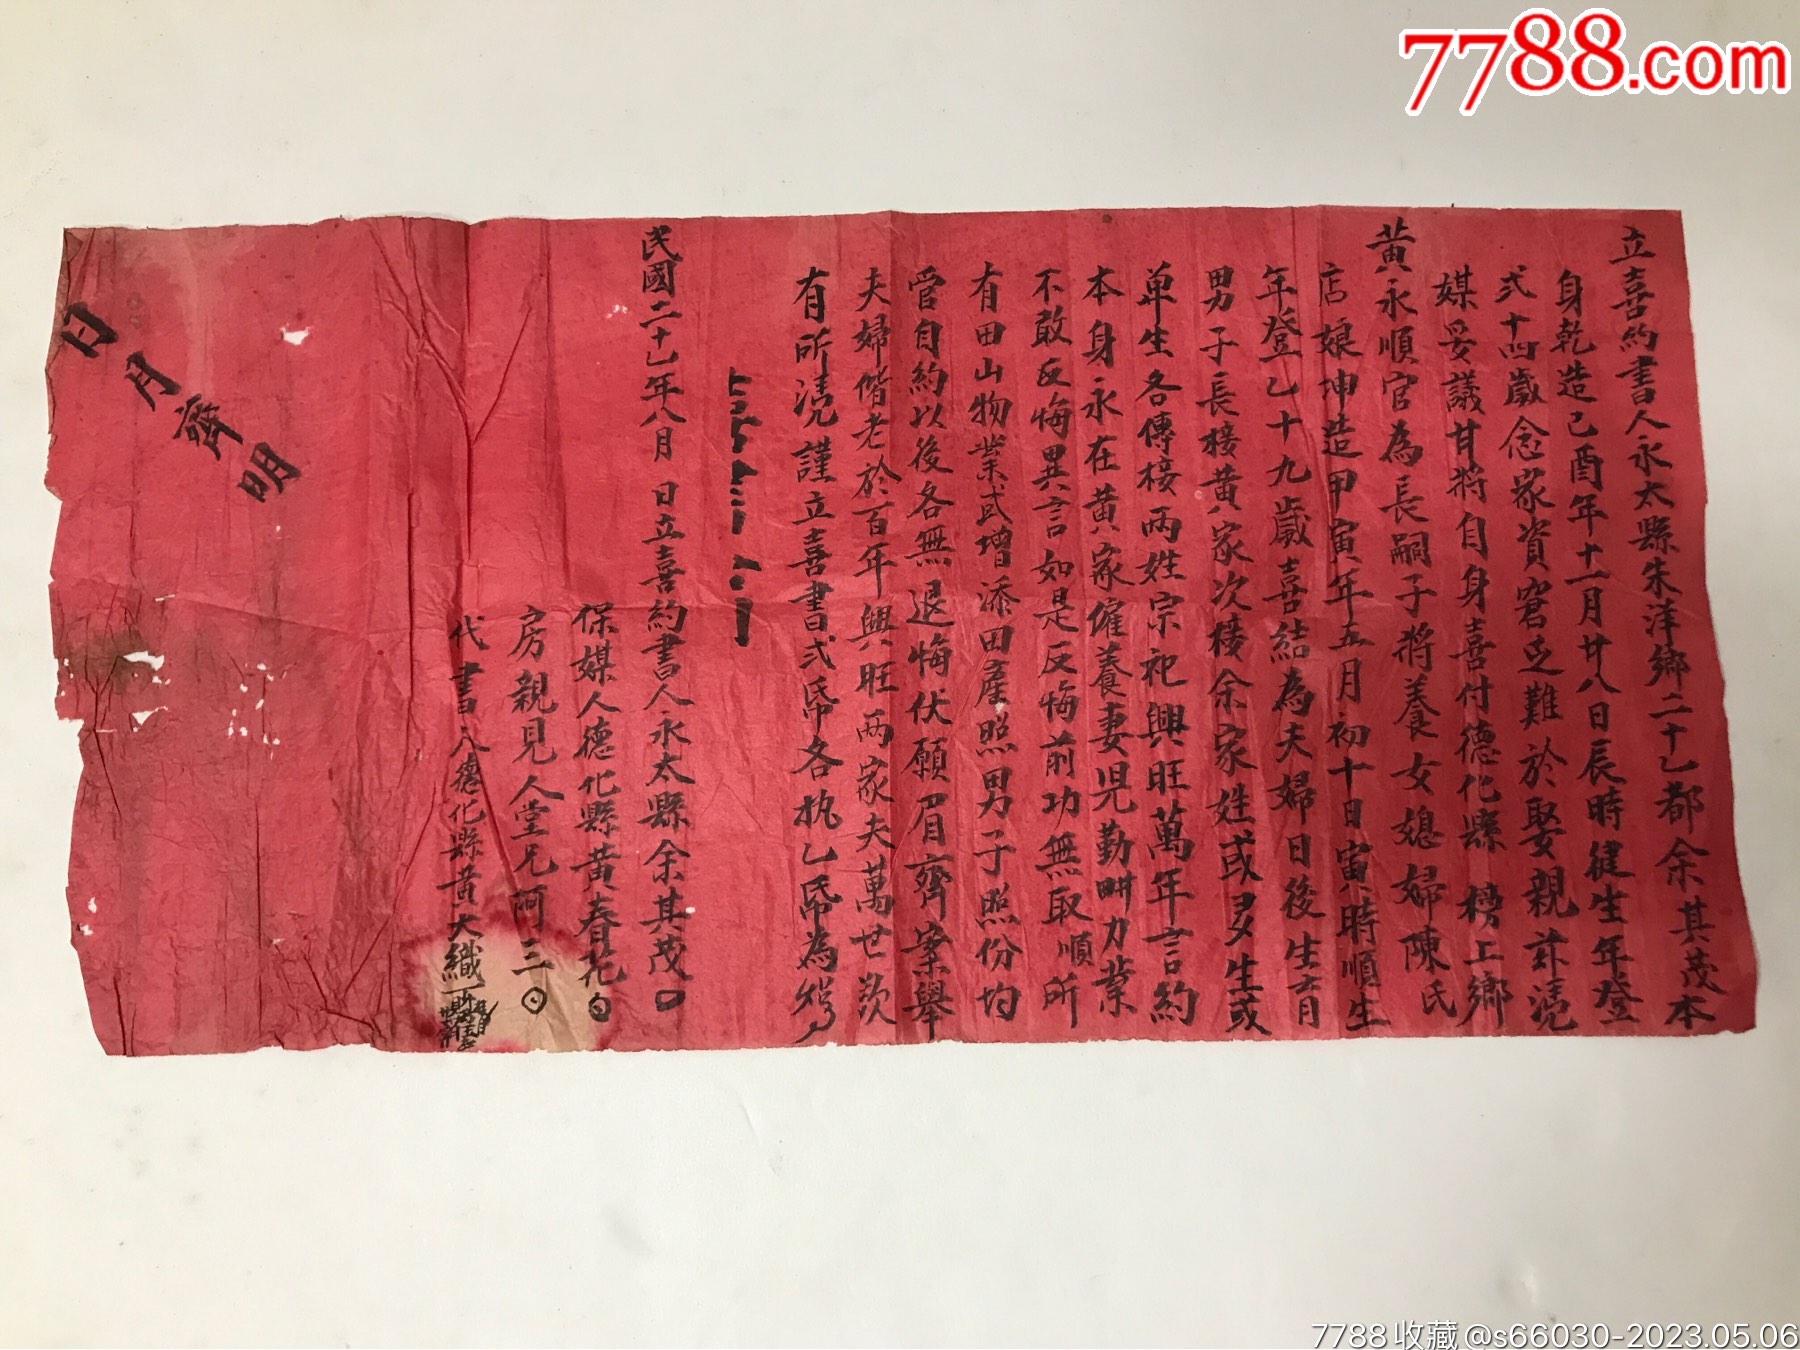 7788.com
立喜約書人永太縣朱洋鄉二十乙都余其茂本
身乾造己酉年十一月廿八日辰時健生年登
弍十四歲念家資窘乏難於娶親託憑
媒妥議甘將自身喜付德化縣榜上鄉
黃永順官為長嗣子將養女媳婦陳氏
店娘坤造甲寅年五月初十日寅時順生
年登乙十九歲喜結為夫婦日後生育
男子長接黃家次接余家姓或多生或
单生各傳接兩姓宗祀興旺萬年言約
本身永在黃家僱養妻児勤畊力業
不敢反悔異言如是反悔前功無取順所
有田山物業或增添田產照男子照份均
管自約以後各無退悔伏願眉齊案舉
夫婦偕老於百年興旺兩家夫萬世欲
有所憑謹立喜書弍帋各执乙帋為炤
民國二十乙年八月 日立喜約書人永太縣余其茂
保媒人德化縣黃春花
房親見人堂兄阿三
代書人德化縣黃大織
日月齊明
7788收藏@s66030-2023.05.06